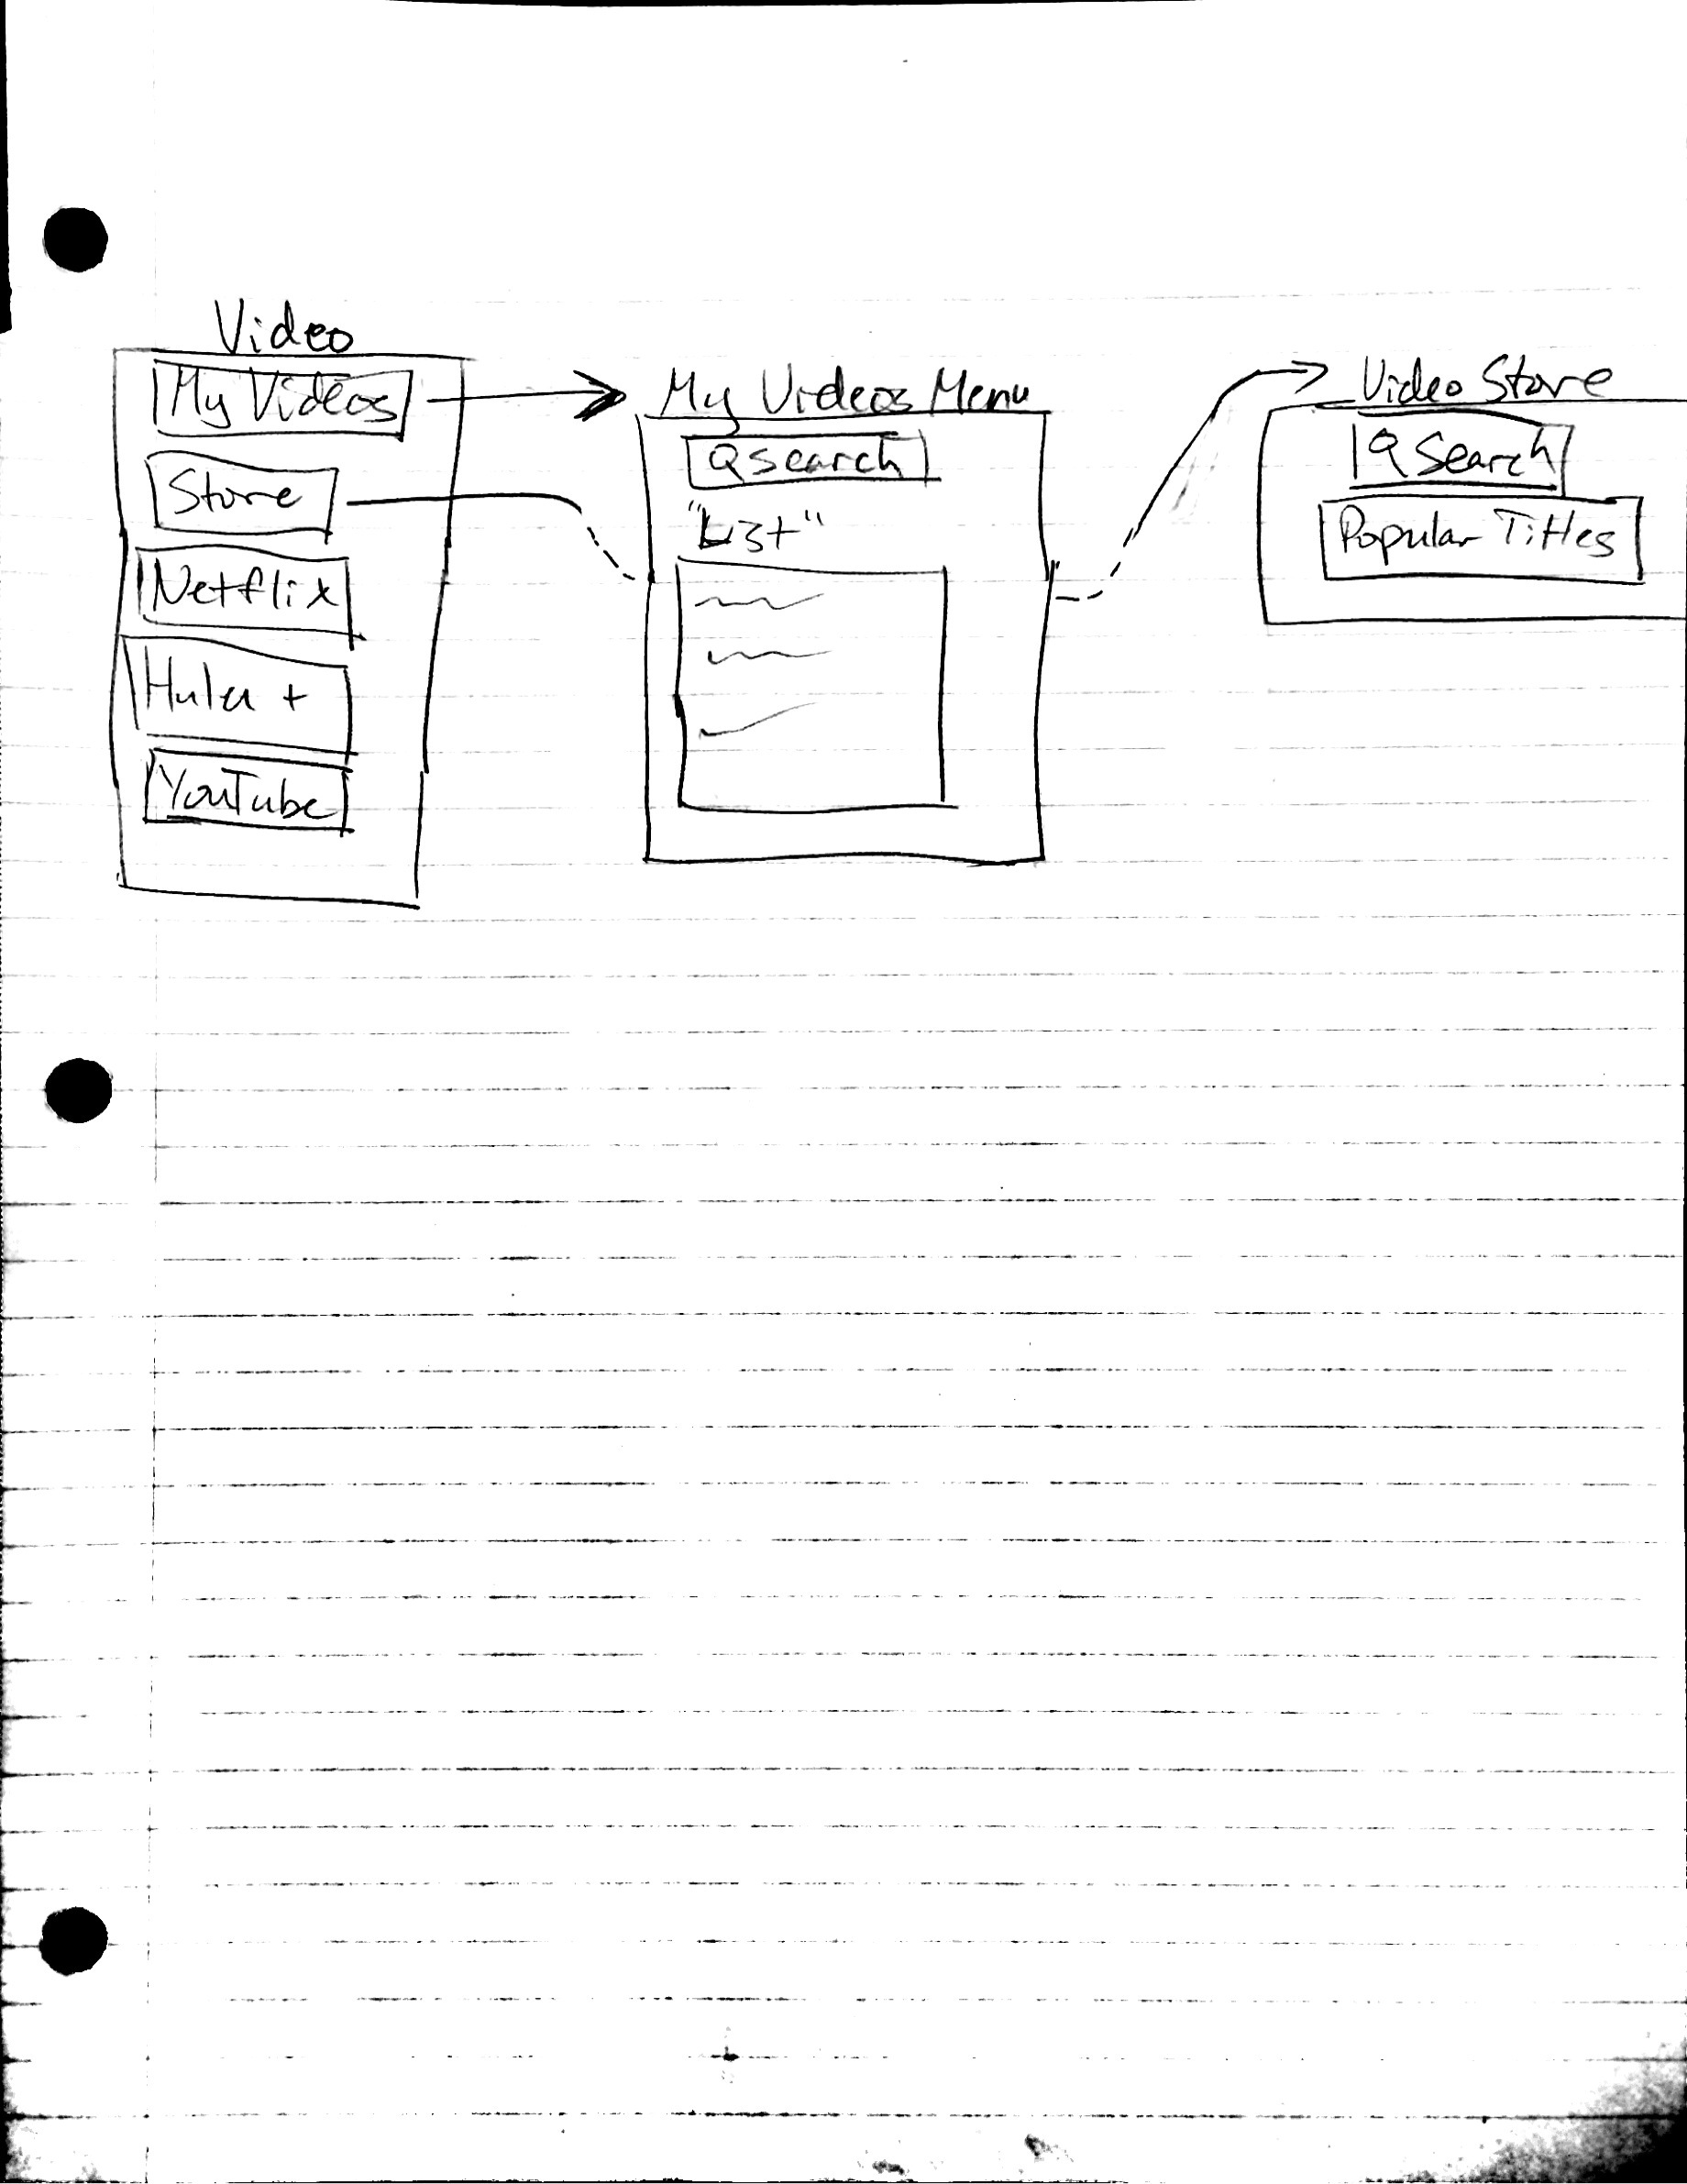 Video
My Videos
Store
Netflix
Hulu +
YouTube
My Videos Menu
Search
"List"
Video Store
Search
Popular Titles